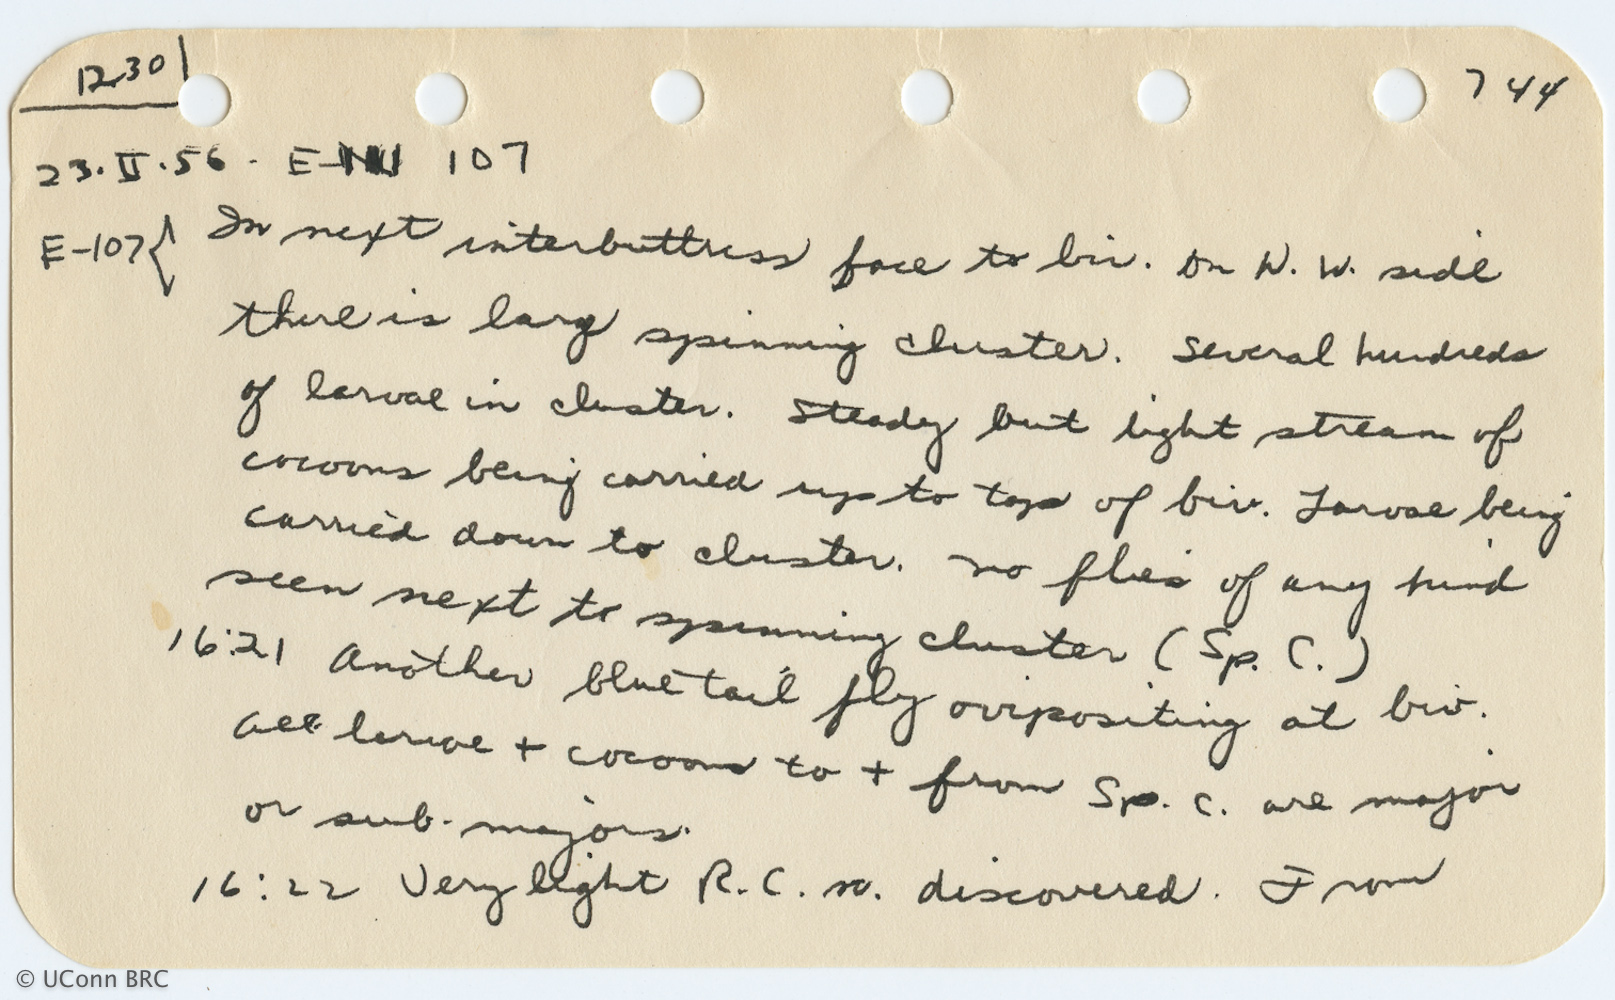 1230
744
23.II.56. E- 107
E-107{ In next interbuttress face to biv. On N.W. side
there is large spinning cluster. Several hundreds
of larvae in cluster. Steady but light stream of
cocoons being carried up to top of biv. Larvae being
carried down to cluster. No flies of any kind
seen next to spinning cluster (Sp. C.)
16:21 Another blue tail fly ovipositing at biv.
All larvae + cocoons to + from Sp. C. are major
or sub-majors.
16:22 Very light R.C. discovered. From
© UConn BRC